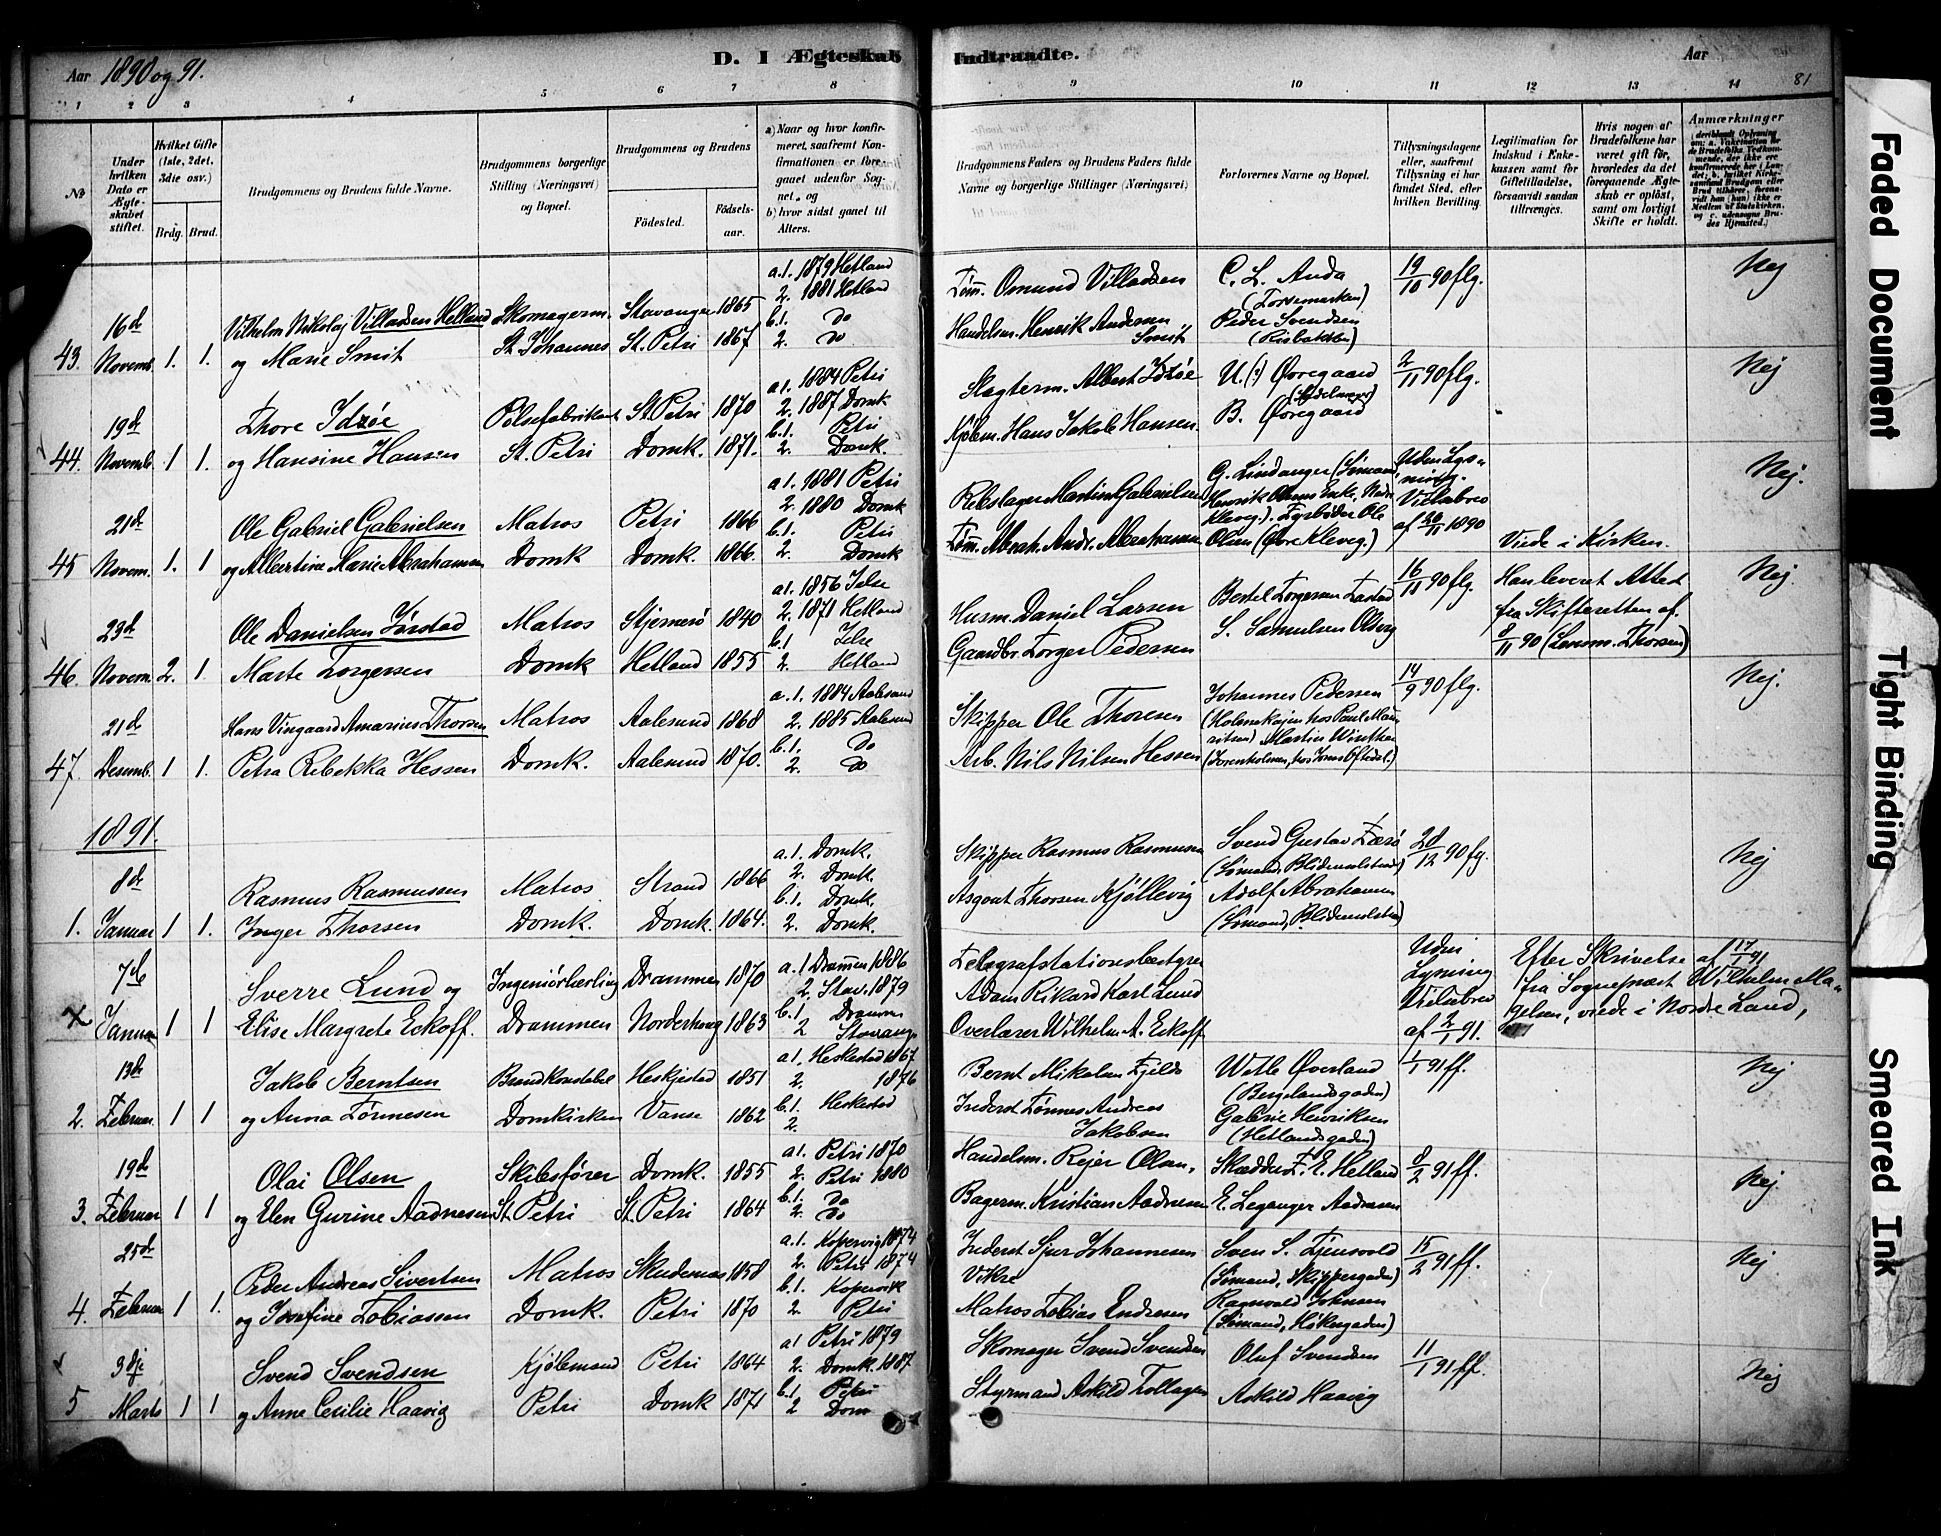 Aar 1890 og 91.
D. I Ægteskab Indtraadte.
Aar
81
1 2 3 4 5 6 7 8 9 10 11 12 13 14
No
Under hvilken Dato er Ægteskabet stiftet.
Hvilket Gifte (1ste, 2det, 3die osv.)
Brdg. Brud.
Brudgommens og Brudens fulde Navne.
Brudgommens borgerlige Stilling (Næringsvei) og Bopæl.
Brudgommens og Brudens
Fødested.
Fødselsaar.
a) Naar og hvor konfirmeret, saafremt Konfirmationen er foregaaet udenfor Sognet, og
b) hvor sidst gaaet til Alters.
Brudgommens Faders og Brudens Faders fulde Navne og borgerlige Stillinger (Næringsvei)
Forlovernes Navne og Bopæl.
Tillysningsdagene eller, saafremt Tillysning ei har fundet Sted, efter hvilken Bevilling.
Legitimation for Indskud i Enkekassen samt for Giftetilladelse, forsaavidt saadan tiltrænges.
Hvis nogen af Brudefolkene har været gift før, hvorledes da det foregaaende Ægteskab er opløst, samt om lovligt Skifte er holdt.
Anmærkninger
43. 16d Novemb. 1. 1.
Vilhelm Nikolaj Villadsen Helland
og Marie Smit
Skomagerm. St. Johannes
Stavanger 1865
St. Petri 1867
a. 1. 1879 Hetland
2. 1881 Hetland
b. 1. Do
2. Do
Tøm. Osmund Villadsen
Handelsm. Henrik Andersen Smit
C. L. Anda
Peder Svendsen
19/10 90 flg.
Nej
44. 19d Novemb. 1 1.
Thore Idsøe
og Hansine Hansen
Pølsefabrikant St. Petri
St. Petri 1870
Domk. 1871.
a 1. 1884 Petri
2. 1887 Domk
b. 1. Petri
2. Domk.
Slagterm. Albert Idsøe
Kjølem. Hans Jakob Hansen.
Øvregaard
B. Øvregaard
2/11 90 flg.
Nej
45 21d Novem. 1. 1
Ole Gabriel Gabrielsen
og Albertine Marie Abrahamsen
Matros Domk
Petri 1866
Domk. 1866.
a 1. 1881 Petri
2. 1880 Domk
b. 1. Petri
2. Domk
Rebslager Martin Gabrielsen
Tøm. Abrah. Andr. Abrahamsen
G. Lindanger (Sømand,
Henrik Olsens Enke, Nedre
Kleveg.). Fyrbøder Ole
Olsen (Øvre Kleveg.)
Uden Lysning.
Vielsebrev
af 20/11 1890
Viede i Kirken.
Nej.
46. 23d Novem. 2. 1
Ole Danielsen Jørstad
Marte Torgersen
Matros Domk
Stjernerø 1840
Hetland 1855
a 1. 1856 Jelse
2. 1871 Hetland
b. 1 Jelse
2. Hetland
Husm. Daniel Larsen
Gaardbr. Torger Pedersen
Bertel Torgersen
S. Samuelsen
16/11 90 flg.
Han leveret Attest
fra Skifteretten af
8/11 90 (Lensm. Thorsen)
Nej.
47 21d Desemb. 1 1.
Hans Vingaard Amarius Thorsen
Petra Rebekka Hessen
Matros Domk.
Aalesund 1868
Aalesund 1870.
a. 1. 1884 Aalesund
2. 1885 Aalesund
b. 1. Do
2. Do
Skipper Ole Thoresen
Arb. Nils Nilsen Hessen
Johannes Pedersen
(Holmekajen hos Paul Mauritsen) Martin Winther
14/9 90 flg.
Nej.
1891.
1. 8d Januar 1 1.
Rasmus Rasmussen
Inger Thorsen
Matros Domk.
Strand 1866
Domk. 1864.
a. 1. Domk.
2. Domk.
b. 1. Domk.
2. Domk.
Skipper Rasmus Rasmussen
Asgout Thorsen Kjøllevig
Svend Gustav Færø
(Sømand, Blidensolstræd)
Adolf Abrahamsen
(Sømand, Blidensolstræd)
28/12 90 fg.
Nej
7d Januar 1 1
Sverre Lund og
Elise Margrete Eckoff.
Ingeniørlærling Drammen
Drammen 1870
Norderhoug 1863
a. 1 Drammen 1886
2. Stav. 1879
b. 1 Drammen
2 Stavanger
Telegrafstationsbestyrer
Adam Rikard Karl Lund
Overlærer Wilhelm A. Eckoff
Uden
Lysning
Vielsebrev
af 2/1 91.
Efter Skrivelse af 17/1 91
fra Sogneprest Wilhelm Magelsen, viede i Nordre Land,
2. 13d Februar. 1 1
Jakob Berntsen
og Anna Tønnesen
Brandkonstabel Domkirken
Heskjestad 1851
Vanse 1862
a 1. Heskestad 1867
2. 1876
b. 1. Heskestad
2.
Bernt Mikalsen Fjelde
Inderst Tønnes Andreas Jakobsen
Welle Øverland
(Bergelandsgaden)
Gabriel Henriksen
(Hetlandsgaden)
1/1 91 ff.
Nej
3. 19d Februar 1 1
Olai Olsen
og Elen Gurine Aadnesen
Skibsfører St. Petri
Domk. 1855
St. Petri 1864
a 1. Petri 1870
2. Petri 1880
b. 1. Do
2. Do
Handelsm. Rejer Olsen,
Bagerm. Kristian Aadnesen
Skrædder F. E. Hetland
E. Leganger Aadnesen
8/2 91 ff.
Nej
4. 25d Februar 1 1.
Peder Andreas Sivertsen
og Josefine Tobiassen
Matros Domk.
Skudenes 1858
Petri 1870
a. 1. Kopervig 1874
2. Petri 1874
b. 1. Kopervik
2 Petri
Inderst Sjur Johannesen
Vikre
Matros Tobias Endresen
Sven S. Tjensvold
(Sømand, Skippergaden)
Ragnvald Johnsen
(Sømand, Høkergaden)
15/2 91 ff.
Nej
5 3dje Marts 1 1
Svend Svendsen
og Anne Cecilie Haavig
Kjøbmand Petri
Petri 1864
Domk 1871
a 1 Petri 1879
2. Domk. 1887
b. 1. Petri
2 Dom
Skomager Svend Svendsen
Styrmand Askild Tollagsen
Oluf Svendsen
Askild Haavig
11/1 91 ff.
Nej
Faded Document
Tight Binding
Smeared Ink